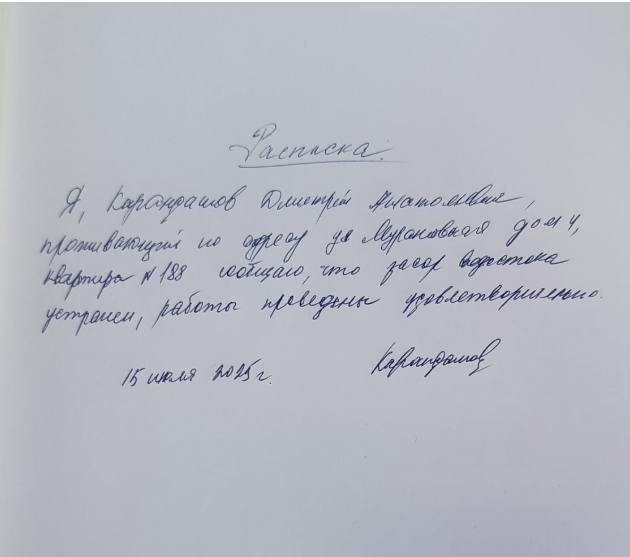 Расписка.
Я, Карандашов Дмитрий Анатольевич,
проживающий по адресу ул Мурановская дом 4,
квартира №188 сообщаю, что засор водостока
устранен, работы проведены удовлетворительно.
15 июля 2025 г. Карандашов